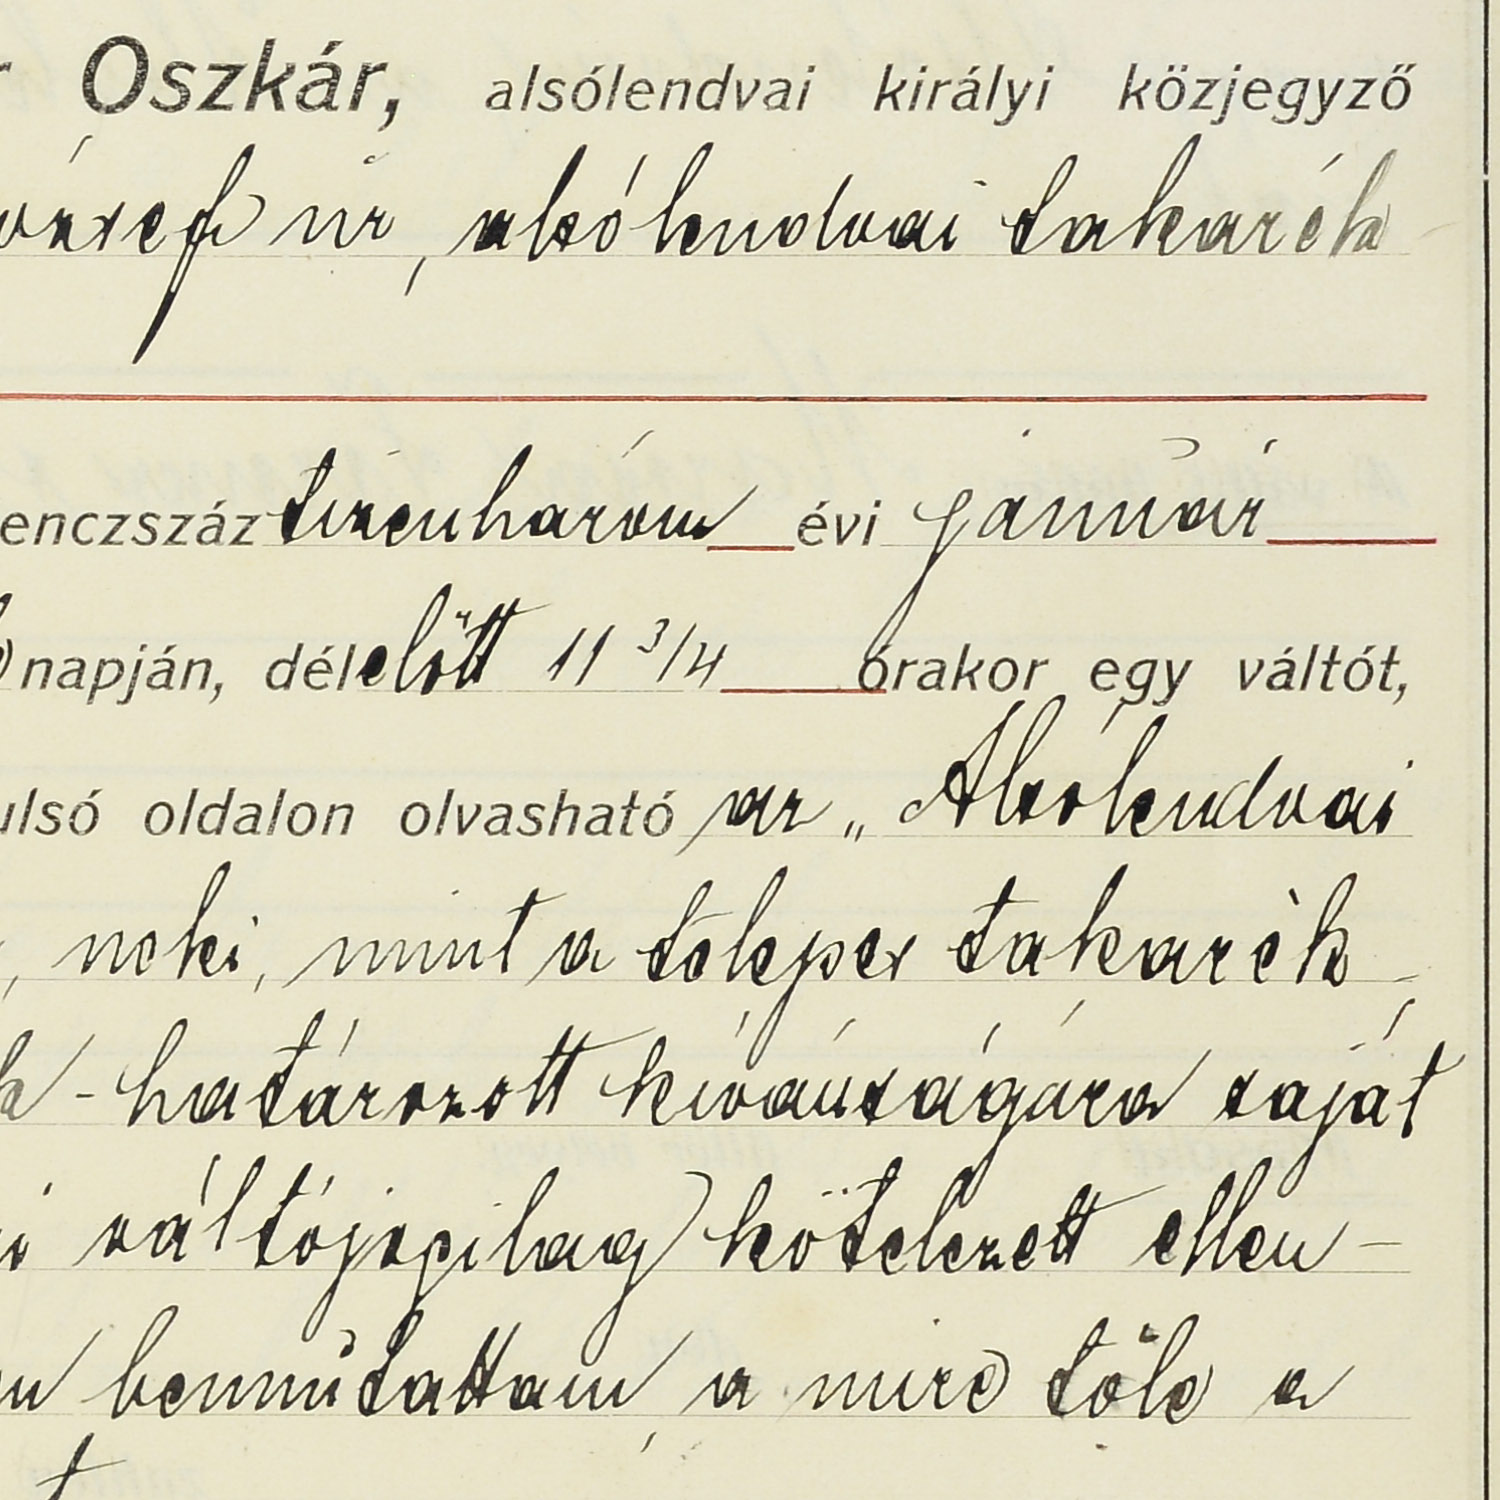 Oszkár, alsólendvai királyi közjegyző
úr, alsólendvai takarék
enczszáz tizenhárom évi január
napján, délelőtt 11 3/4 órakor egy váltót,
ulsó oldalon olvasható az „Alsólendvai
, neki, mint a telepes takarék
- határozott kívánságára saját
i váltójogilag kötelezett ellen-
bemutattam, a mire tőle a